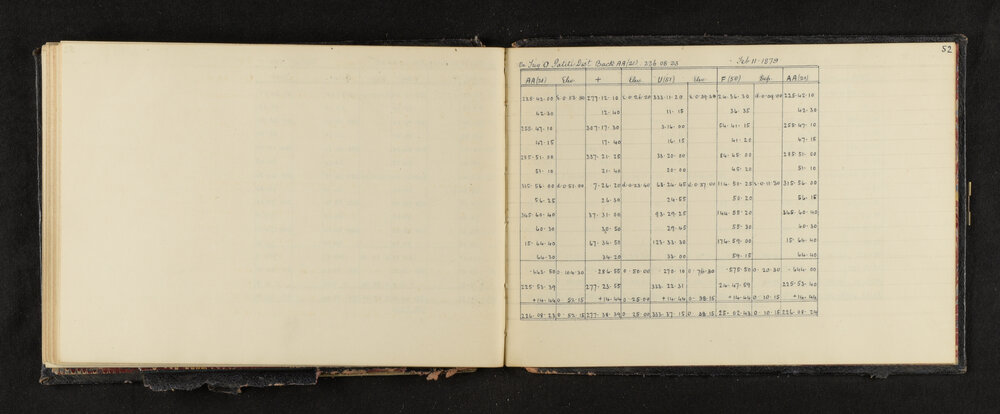 52
On Trig O Pulili Dist Back AA(21) 226·08·23 Feb 11-1879
AA(21) Elev + Elev U(51) Elev F(50) Dep. AA(21)
225·42·00 277·12·10 333·11·20 24·36·20 225·42·10
42·20 12·40 11·15 36·35 42·30
255·47·10 307·17·30 3·16·00 54·41·15 255·47·10
47·15 17·40 16·15 41·20 47·15
285·51·00 337·21·25 33·20·00 84·45·00 285·51·00
51·10 21·40 20·00 45·20 51·10
315·56·00 d·0·51·00 7·26·20 d·0·23·40 63·24·45 d·0·37·00 114·50·25 315·56·00
56·25 26·30 24·55 50·20 56·15
345·60·40 37·31·00 93·29·25 144·55·20 345·60·40
60·30 30·50 29·45 55·30 60·30
15·64·40 67·34·50 123·33·30 174·59·00 15·64·40
64·30 34·20 33·00 59·15 64·40
·643·50 0·104·30 286·55 0·50·00 270·10 0·76·30 ·575·50 0·20·30 ·644·00
225·53·39 277·23·55 333·22·31 24·47·59 225·53·40
+14·44 0 52·15 +14·44 0 25·00 +14·44 0 38·15 +14·44 0 10·15 +14·44
226·08·23 0 52·15 277·38·39 0 25·00 333·37·15 0 38·15 25·02·43 0 10·15 226·08·24